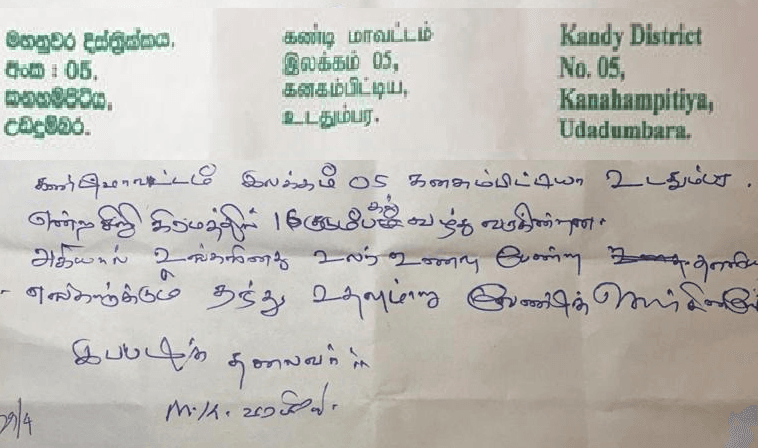 මහනුවර දිස්ත්‍රික්කය,
අංක : 05,
කනහම්පිටිය,
උඩදුම්බර.
கண்டி மாவட்டம்
இலக்கம் 05,
கனகம்பிட்டிய,
உடதும்பர.
Kandy District
No. 05,
Kanahampitiya,
Udadumbara.
கண்டிமாவட்டம் இலக்கம் 05 கனகம்பிட்டியா உடதும்பர.
என்ற சிறி கிரமத்தில் 16 வழ்ந்து வருகின்றன.
அகியால் உங்களினது உலர் உணவு போன்று
எங்களுக்கும் தந்து உதவுமாறு வேண்டிக்
இப்படிக்கு தலைவர்
M.K.
29/4